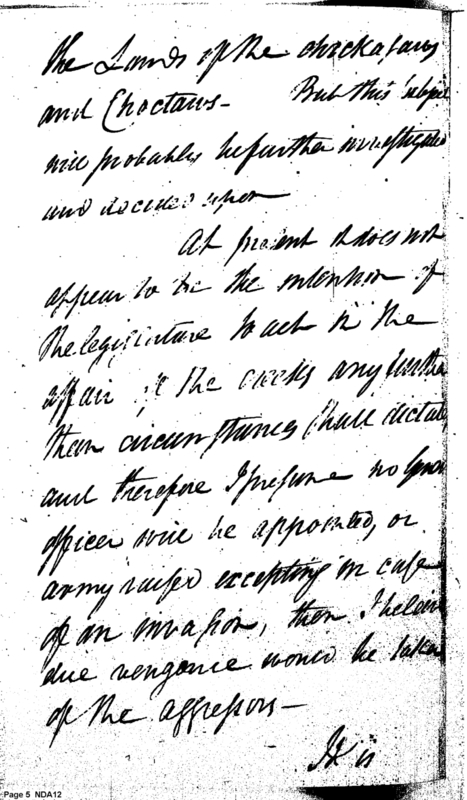 the Lands of the Chickasaws
and Choctaws - But this subject
will probably be further investigated
and decided upon
At present it does not
appear to be the intention of
the legislature to act in the
affair of the creeks any further
than circumstances shall dictate
and therefore I presume no
officer will be appointed, or
army raised excepting in case
of an invasion, then I believe
due vengence would be taken
of the aggressors -
It is
Page 5 NDA12